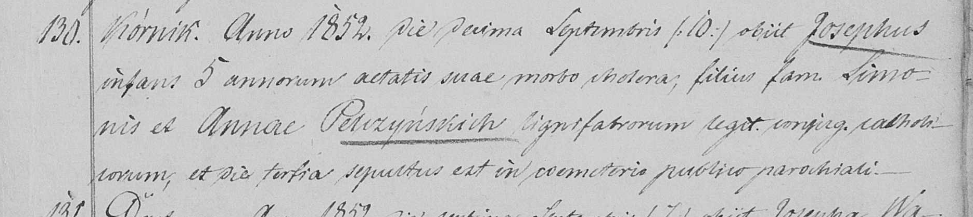 130. Kórnik. Anno 1852. die decima Septembris (:10:) obiit Josephus
infans 5 annorum aetatis suae morbo cholera, filius fam. Simo-
nis et Annae Pelczyńskich lignifabrorum legit. conjug. catholi-
corum, et die tertia sepultus est in coemeterio publico parochiali.—
131. 1852 die septima Septembris (:7:) obiit Josepha